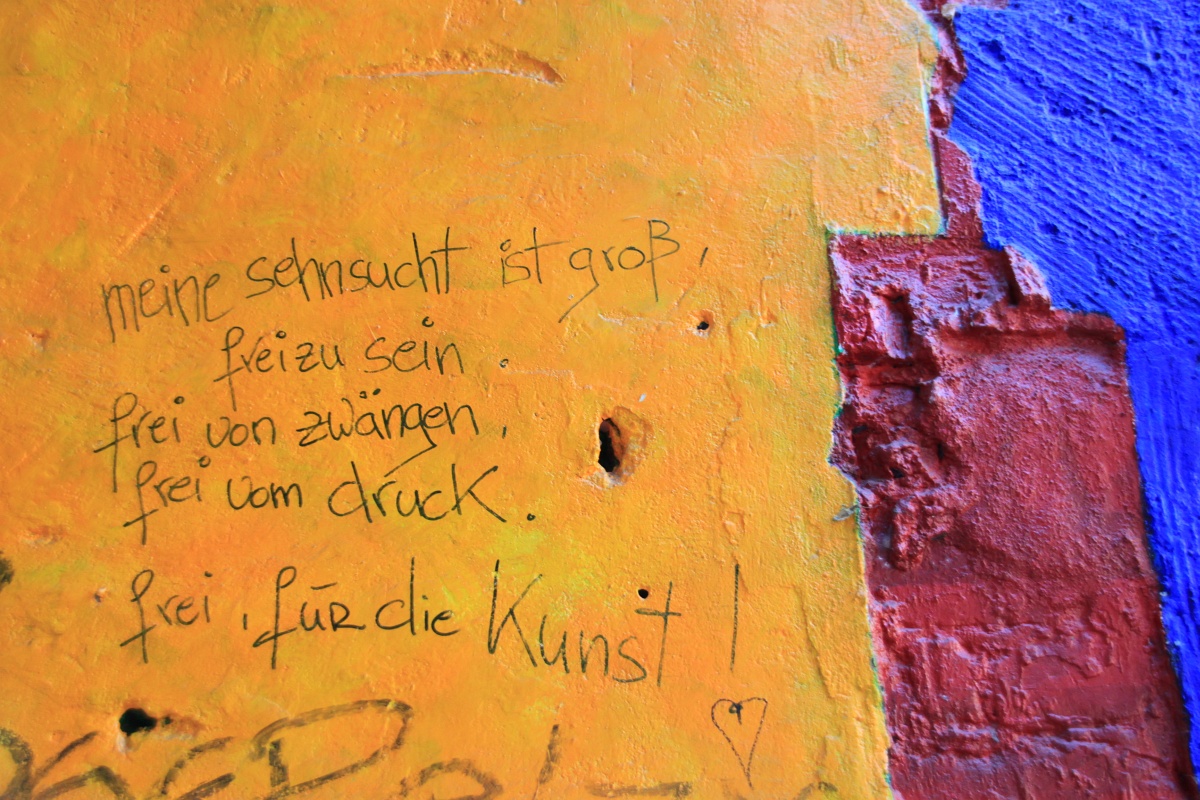 meine sehnsucht ist groß,
frei zu sein.
frei von zwängen,
frei vom druck.
frei, für die Kunst!